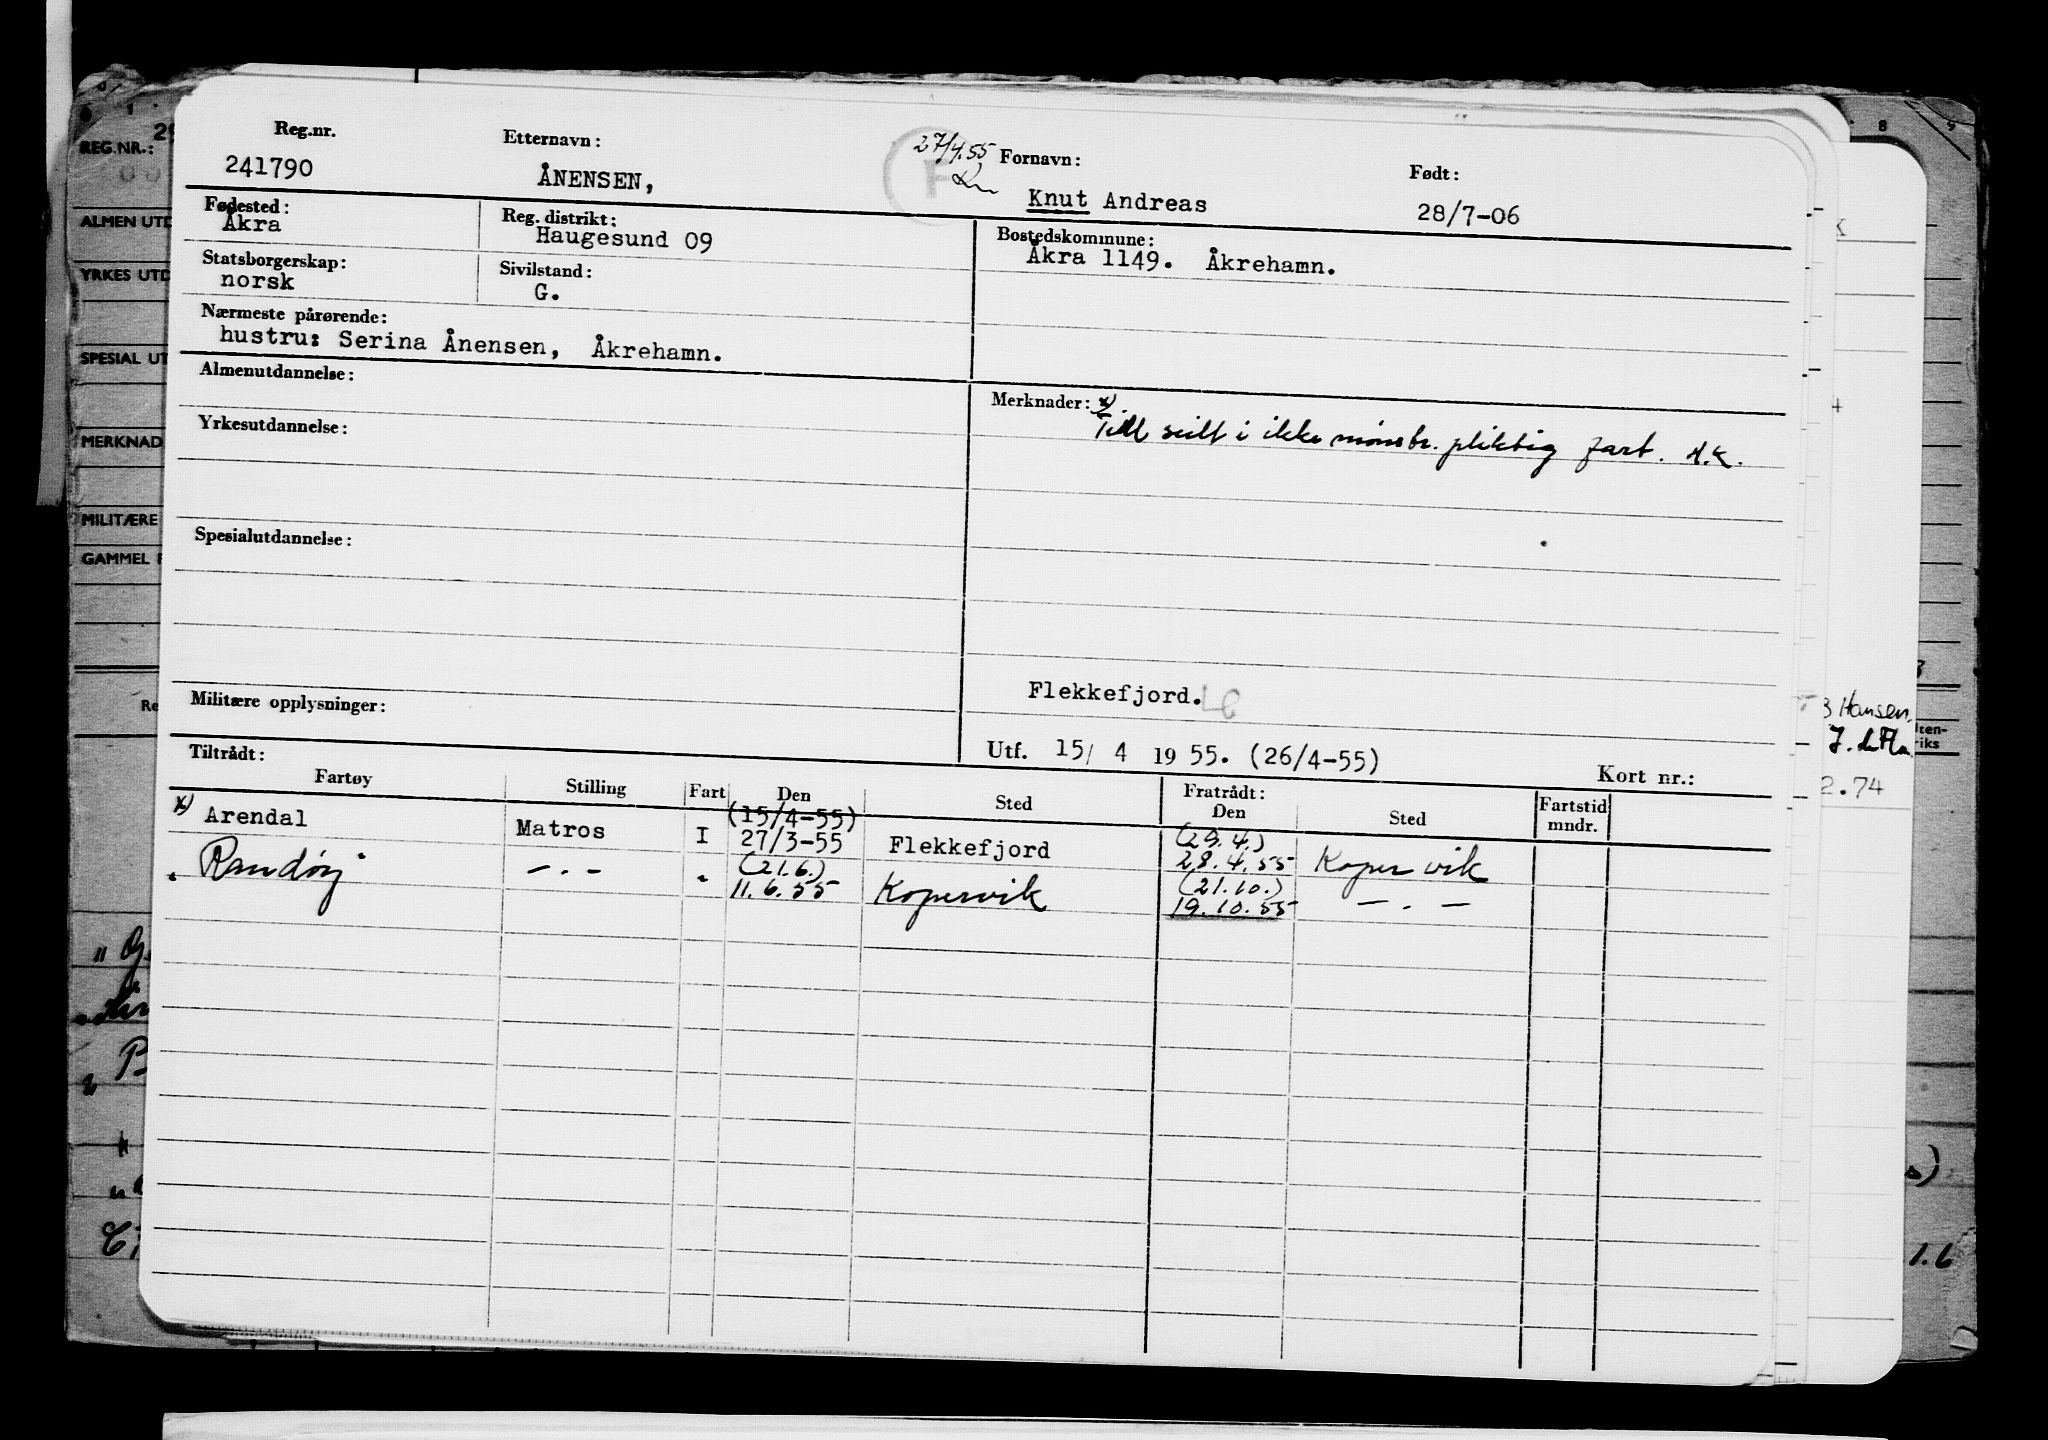 Reg.nr. Etternavn: 27/4.55 Fornavn: Født:
241790 ÅNENSEN, Knut Andreas 28/7-06
Fødested: Reg. distrikt: Bostedskommune:
Åkra Haugesund 09 Åkra 1149. Åkrehamn.
Statsborgerskap: Sivilstand:
norsk G.
Nærmeste pårørende:
hustru: Serina Ånensen, Åkrehamn.
Almenutdannelse: Merknader: x)
Yrkesutdannelse: Tidl seilt i ikke mønstr. pliktig fart. A.K.
Spesialutdannelse:
Flekkefjord.
Militære opplysninger:
Utf. 15/ 4 19 55. (26/4-55) Kort nr.:
Tiltrådt:
Fartøy Stilling Fart Den Sted Fratrådt: Den Sted Fartstid mndr.
x) Arendal Matros I (15/4-55) 27/3-55 Flekkefjord (29.4.) 28.4.55 Kopervik
" Randøy — . — " (21.6.) 11.6.55 Kopervik (21.10.) 19.10.55 — . —
REG.NR.:
ALMEN UTD
YRKES UTD
SPESIAL UT
MERKNAD
MILITÆRE
GAMMEL F
8 9
Hansen
2.74
1.6